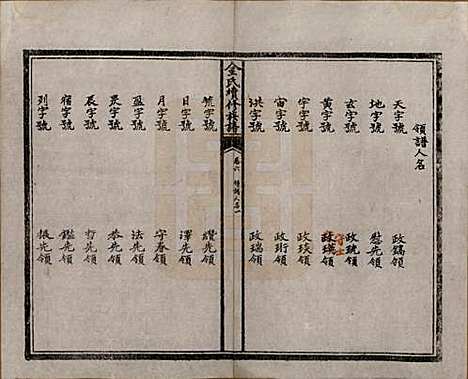 領譜人名
天字號 政鎬領
地字號 慰先領
玄字號 政珫領
黃字號 政瑛領
守士
宇字號 政琰領
宙字號 政珩領
洪字號 政瑞領
金氏續修族譜
卷六 領譜人名 一
荒字號 纘先領
日字號 澤先領
月字號 守春領
盈字號 法先領
昃字號 恭先領
辰字號 哲先領
宿字號 鑑先領
列字號 振先領